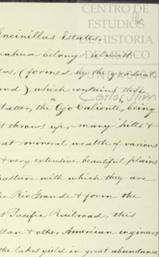 CENTRO DE
ESTUDIOS
DE HISTORIA
DE MEXICO
Encinillas Estates,
belong
(formed by the gradual
and), which contain the
latter, the "Ojo Caliente, being
throws up, many hills &
at mineral wealth of various
& very extensive beautiful plains
pasture with which they are
Rio Grande & form the
Pacific Railroad, this
& other American engineers
the lakes yield in great abundance